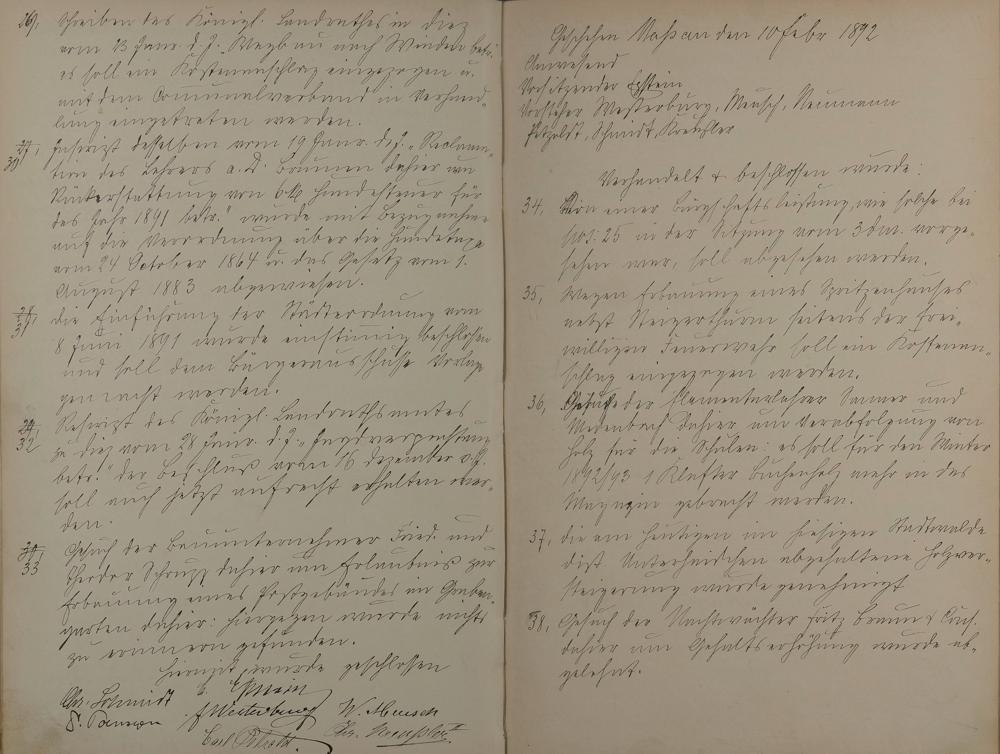 Schreiben des Königl. Landrathes in Diez
vom 23 Janr. d. J. Wegbau nach Winden betr.
es soll ein Kostenanschlag eingezogen u.
mit dem Communalverband in Verhand-
lung eingetreten werden.
30, Inscript desselben vom 19 Janr. d. J. „Reclama-
tion des Lehrers a. D. Brumm dahier um
Rückerstattung von 6 M Hundesteuer für
das Jahr 1891 betr." wurde mit Bezugnahme
auf die Verordnung über die Hundetaxe
vom 24 October 1864 u. das Gesetz vom 1.
August 1883 abgewiesen.
31, die Einführung der Städteordnung vom
8 Juni 1891 wurde einstimmig beschlossen
und soll dem Bürgerausschusse Vorlage
gemacht werden.
32 Rescript des Königl. Landrathsamtes
zu Diez vom 28 Janr. d. J. „Jagdverpachtung
betr." der Beschluß vom 16 Dezember v. J.
soll auch jetzt aufrecht erhalten wer-
den.
33 Gesuch der Bauunternehmer Fried. und
Theodor Schrupp dahier um Erlaubnis zur
Erbauung eines Postgebäudes im Graben-
garten dahier: hiergegen wurde nichts
zu erinnern gefunden.
Hiermit wurde geschlossen
Chr. Schmidt Epstein
J. Westerburg W. Mensch
Carl Petzold
Geschehen Nassau den 10 Febr 1892
Anwesend
Vorsitzender Epstein
Vorsteher Westerburg, Mensch, Neumann
Petzoldt, Schmidt,
Verhandelt & beschlossen wurde:
34, Von einer Bürgschaftsleistung, wie solche bei
pos. 25 in der Sitzung vom 3 d. M. vorge-
sehen war, soll abgesehen werden.
35, Wegen Erbauung eines Spritzenhauses
nebst Steigerthurm seitens der Frei-
willigen Feuerwehr soll ein Kostenan-
schlag eingezogen werden.
36, Gesuche der Elementarlehrer und
Medenbach dahier um Verabfolgung von
Holz für die Schulen: es soll für den Winter
1892/93 1 Klafter Buchenholz mehr in das
Magazin gebracht werden.
37, die am Heutigen im hiesigen Stadtwalde
Dist. Unterhaischen abgehaltene Holzver-
steigerung wurde genehmigt
38, Gesuch der Nachtwächter Fritz Braun & Cons.
dahier um Gehaltserhöhung wurde ab-
gelehnt.